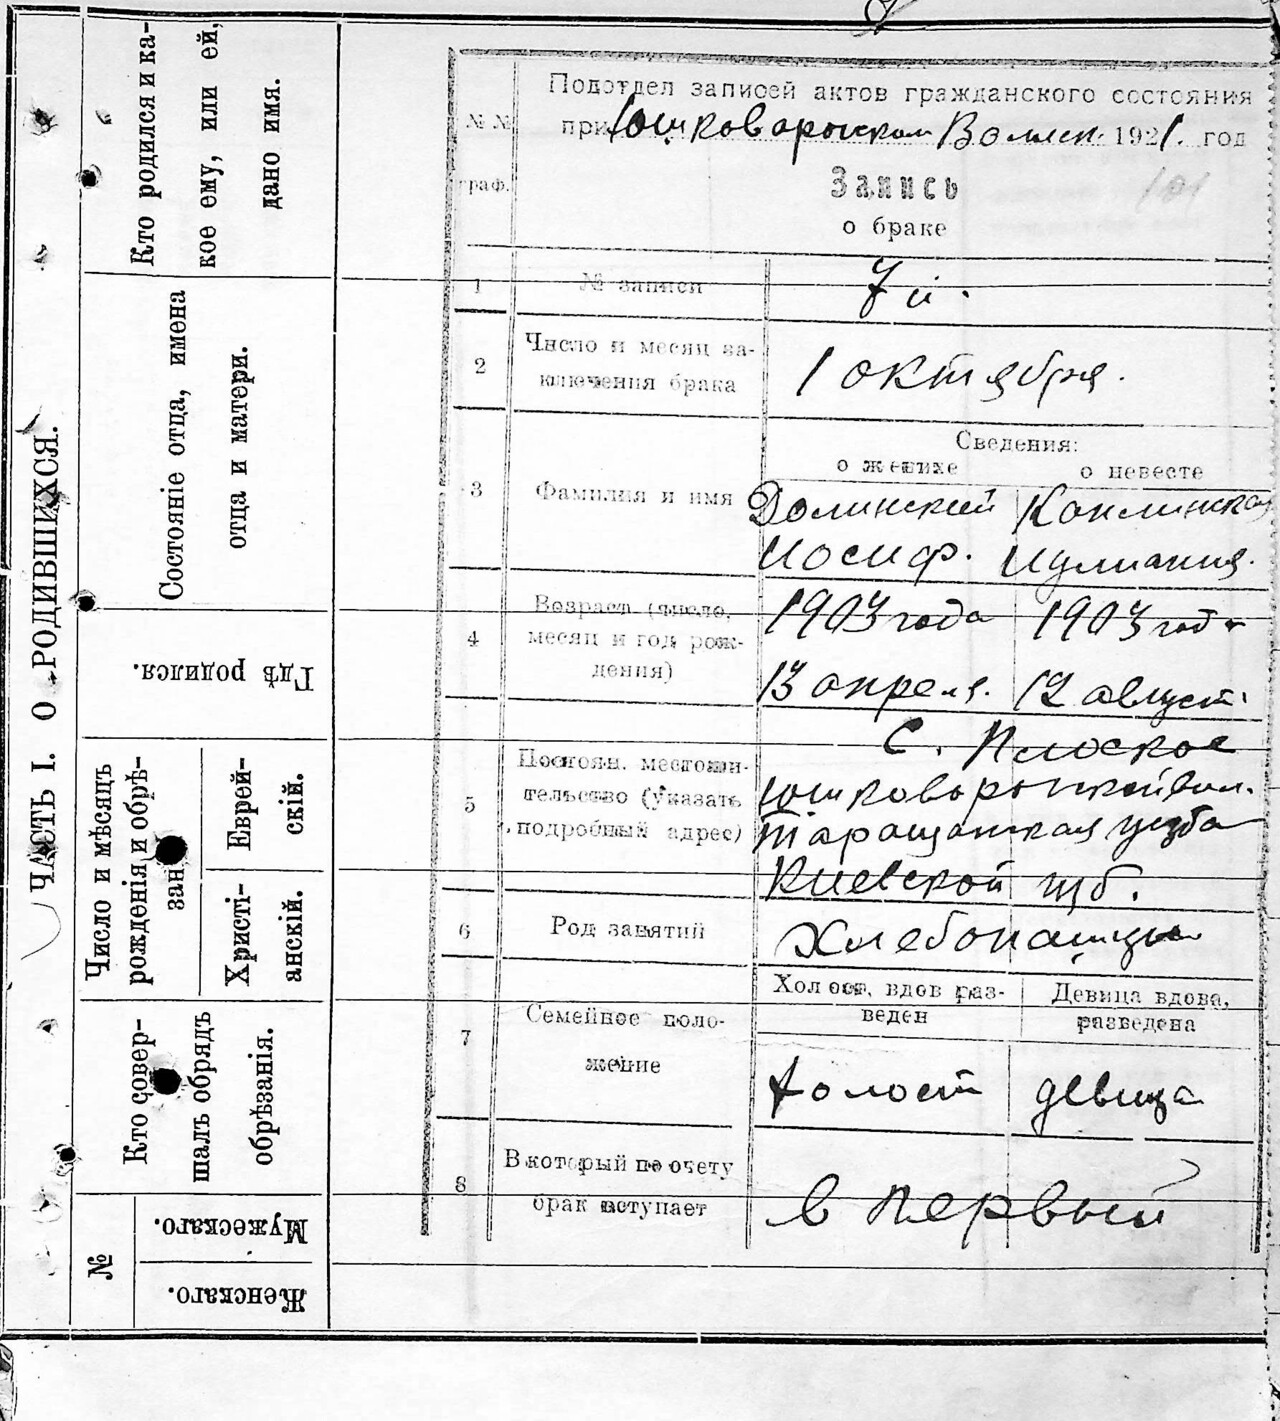 ЧАСТЬ I. О РОДИВШИХСЯ.
Кто родился и ка-
кое ему, или ей,
дано имя.
Состояніе отца, имена
отца и матери.
Гдѣ родился.
Число и мѣсяцъ
рожденія и обрѣ-
зан
Еврей-
скій.
Христі-
анскій.
Кто совер-
шалъ обрядъ
обрѣзанія.
№
Мужескаго.
Женскаго.
№№
граф.
Подотдел записей актов гражданского состояния
при Юшковарогском Волисп. 1921. год
Запись
о браке
1 № записи 7й.
2 Число и месяц за-
ключения брака
1 октября.
3 Фамилия и имя
Сведения:
о женихе о невесте
Долинский
Иосиф.
4 Возраст (число,
месяц и год рож-
дения)
1903 года 1903 года
13 апреля. 12 август.
5 Постоян. местожи-
тельство (указать
подробный адрес)
С. Плоское
юшковарогской вол.
Таращанская уезда
Киевской губ.
6 Род занятий Хлебопашцы
7 Семейное поло-
жение
Холост, вдов раз-
веден
Девица вдова,
разведена
холост девица
8 В который по счету
брак вступает
в первый